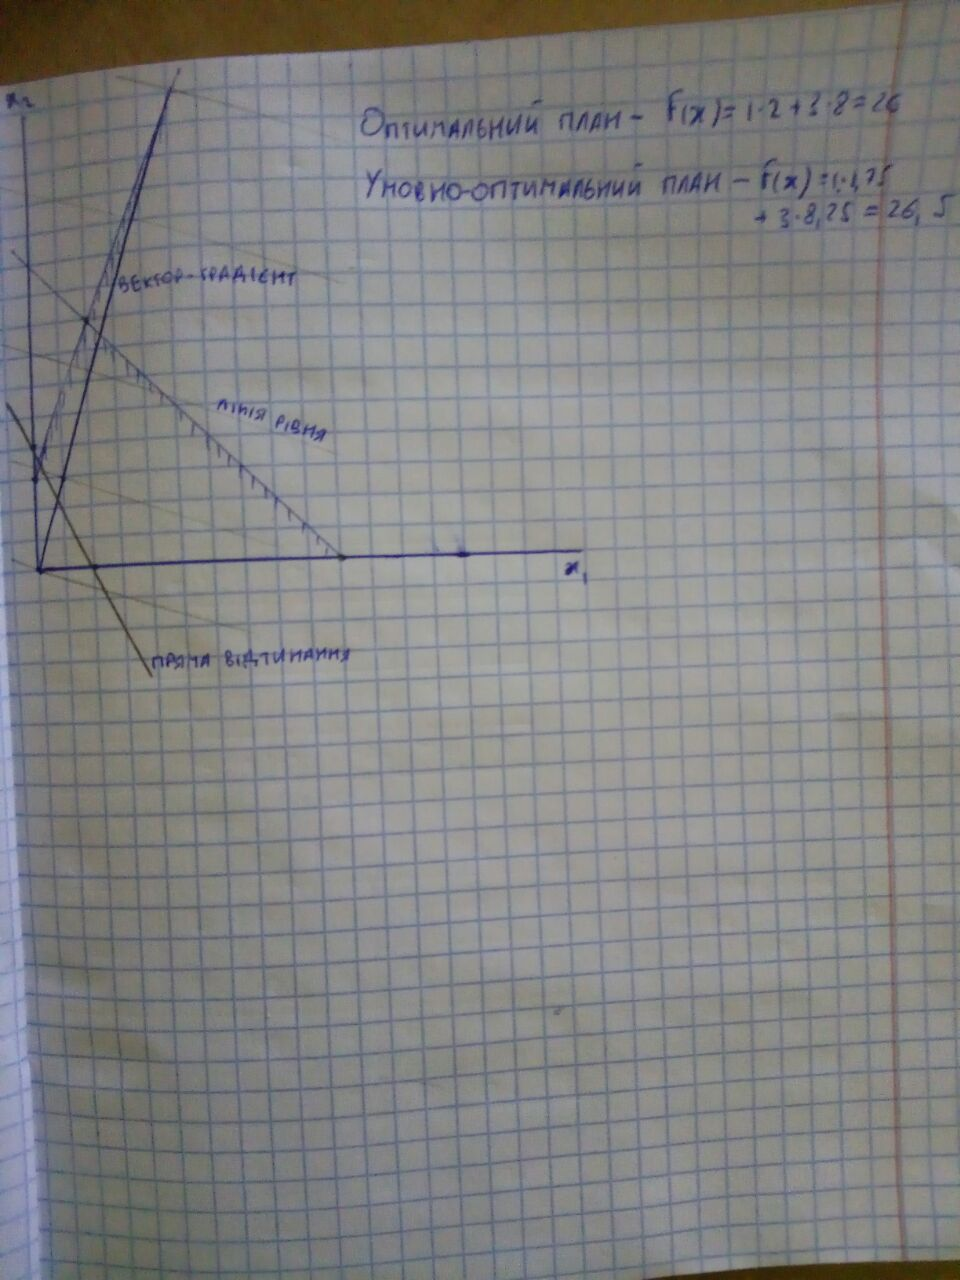 x₂
Оптимальний план – F(x) = 1·2 + 3·8 = 26
Умовно-оптимальний план – F(x) = 1·1,75
+ 3·8,25 = 26,5
вектор-градієнт
лінія рівня
x₁
пряма відтинання